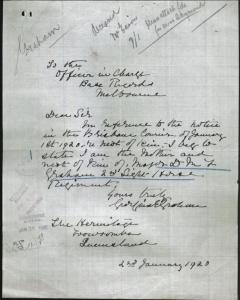 Graham
To the
Officer in Charge
Base Records
Melbourne
Dear Sir
In reference to the notice
in the Brisbane Courier of January
1st 1920, re next of Kin. I beg to
state I am the Mother and
next of Kin of Major D. M. L.
Graham 2nd Light Horse
Regiment.
Yours truly
Graham
The Hermitage
Toowoomba
Queensland
2nd January 1920